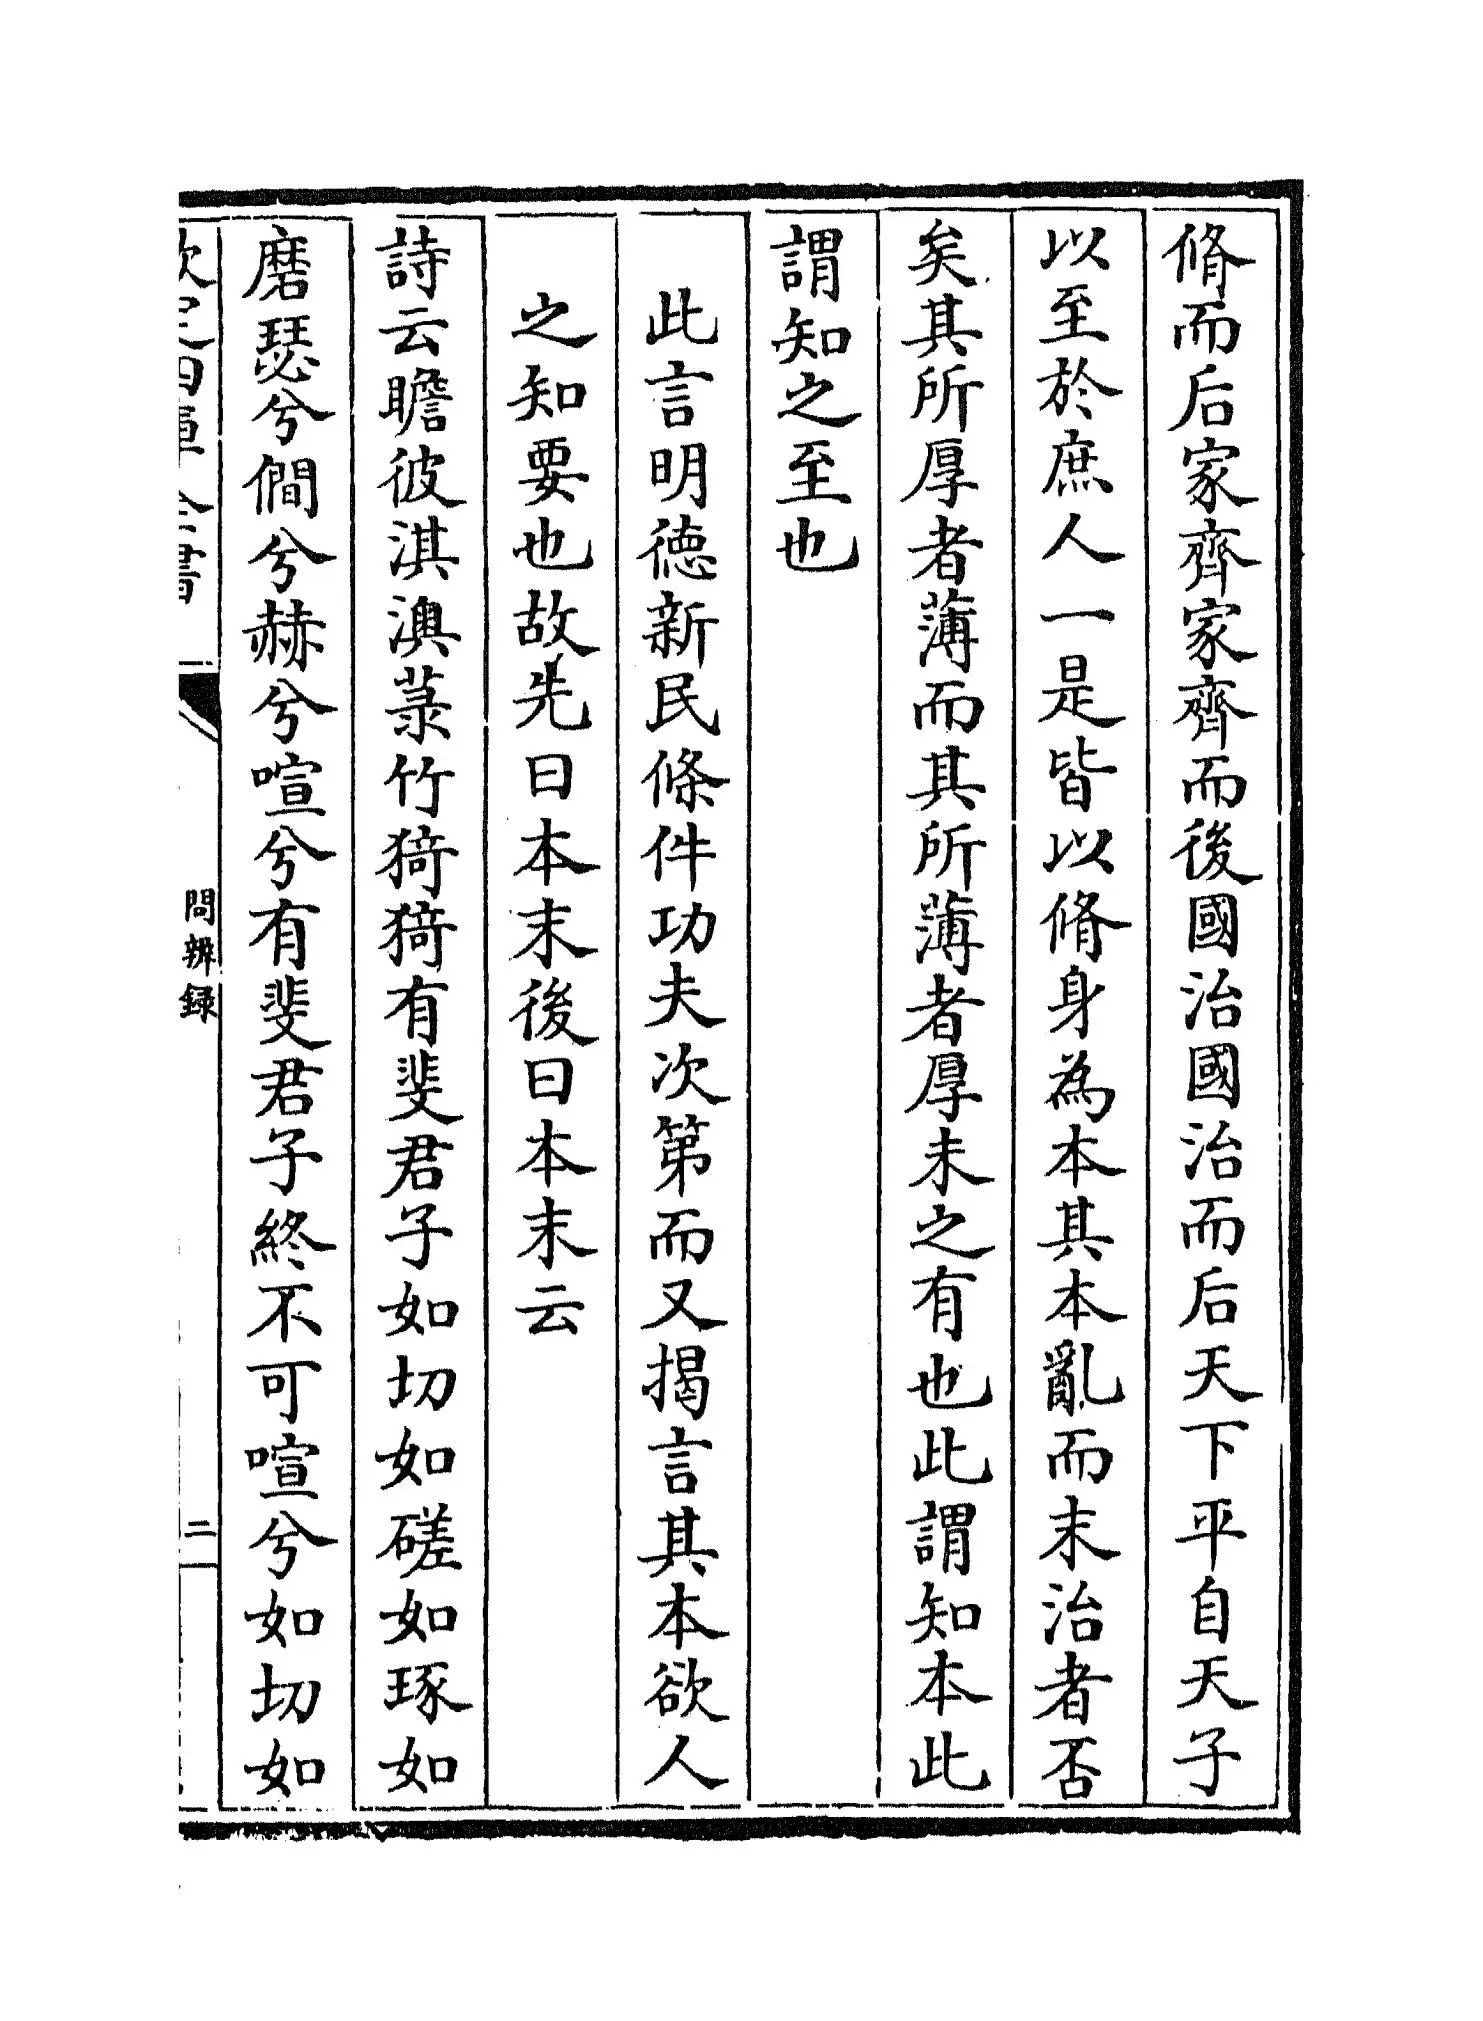 脩而后家齊家齊而後國治國治而后天下平自天子
以至於庶人一是皆以脩身為本其本亂而末治者否
矣其所厚者薄而其所薄者厚未之有也此謂知本此
謂知之至也
此言明徳新民條件功夫次第而又揭言其本欲人
之知要也故先曰本末後曰本末云
詩云瞻彼淇澳菉竹猗猗有斐君子如切如磋如琢如
磨瑟兮僩兮赫兮喧兮有斐君子終不可喧兮如切如
欽定四庫全書
問辨録
二